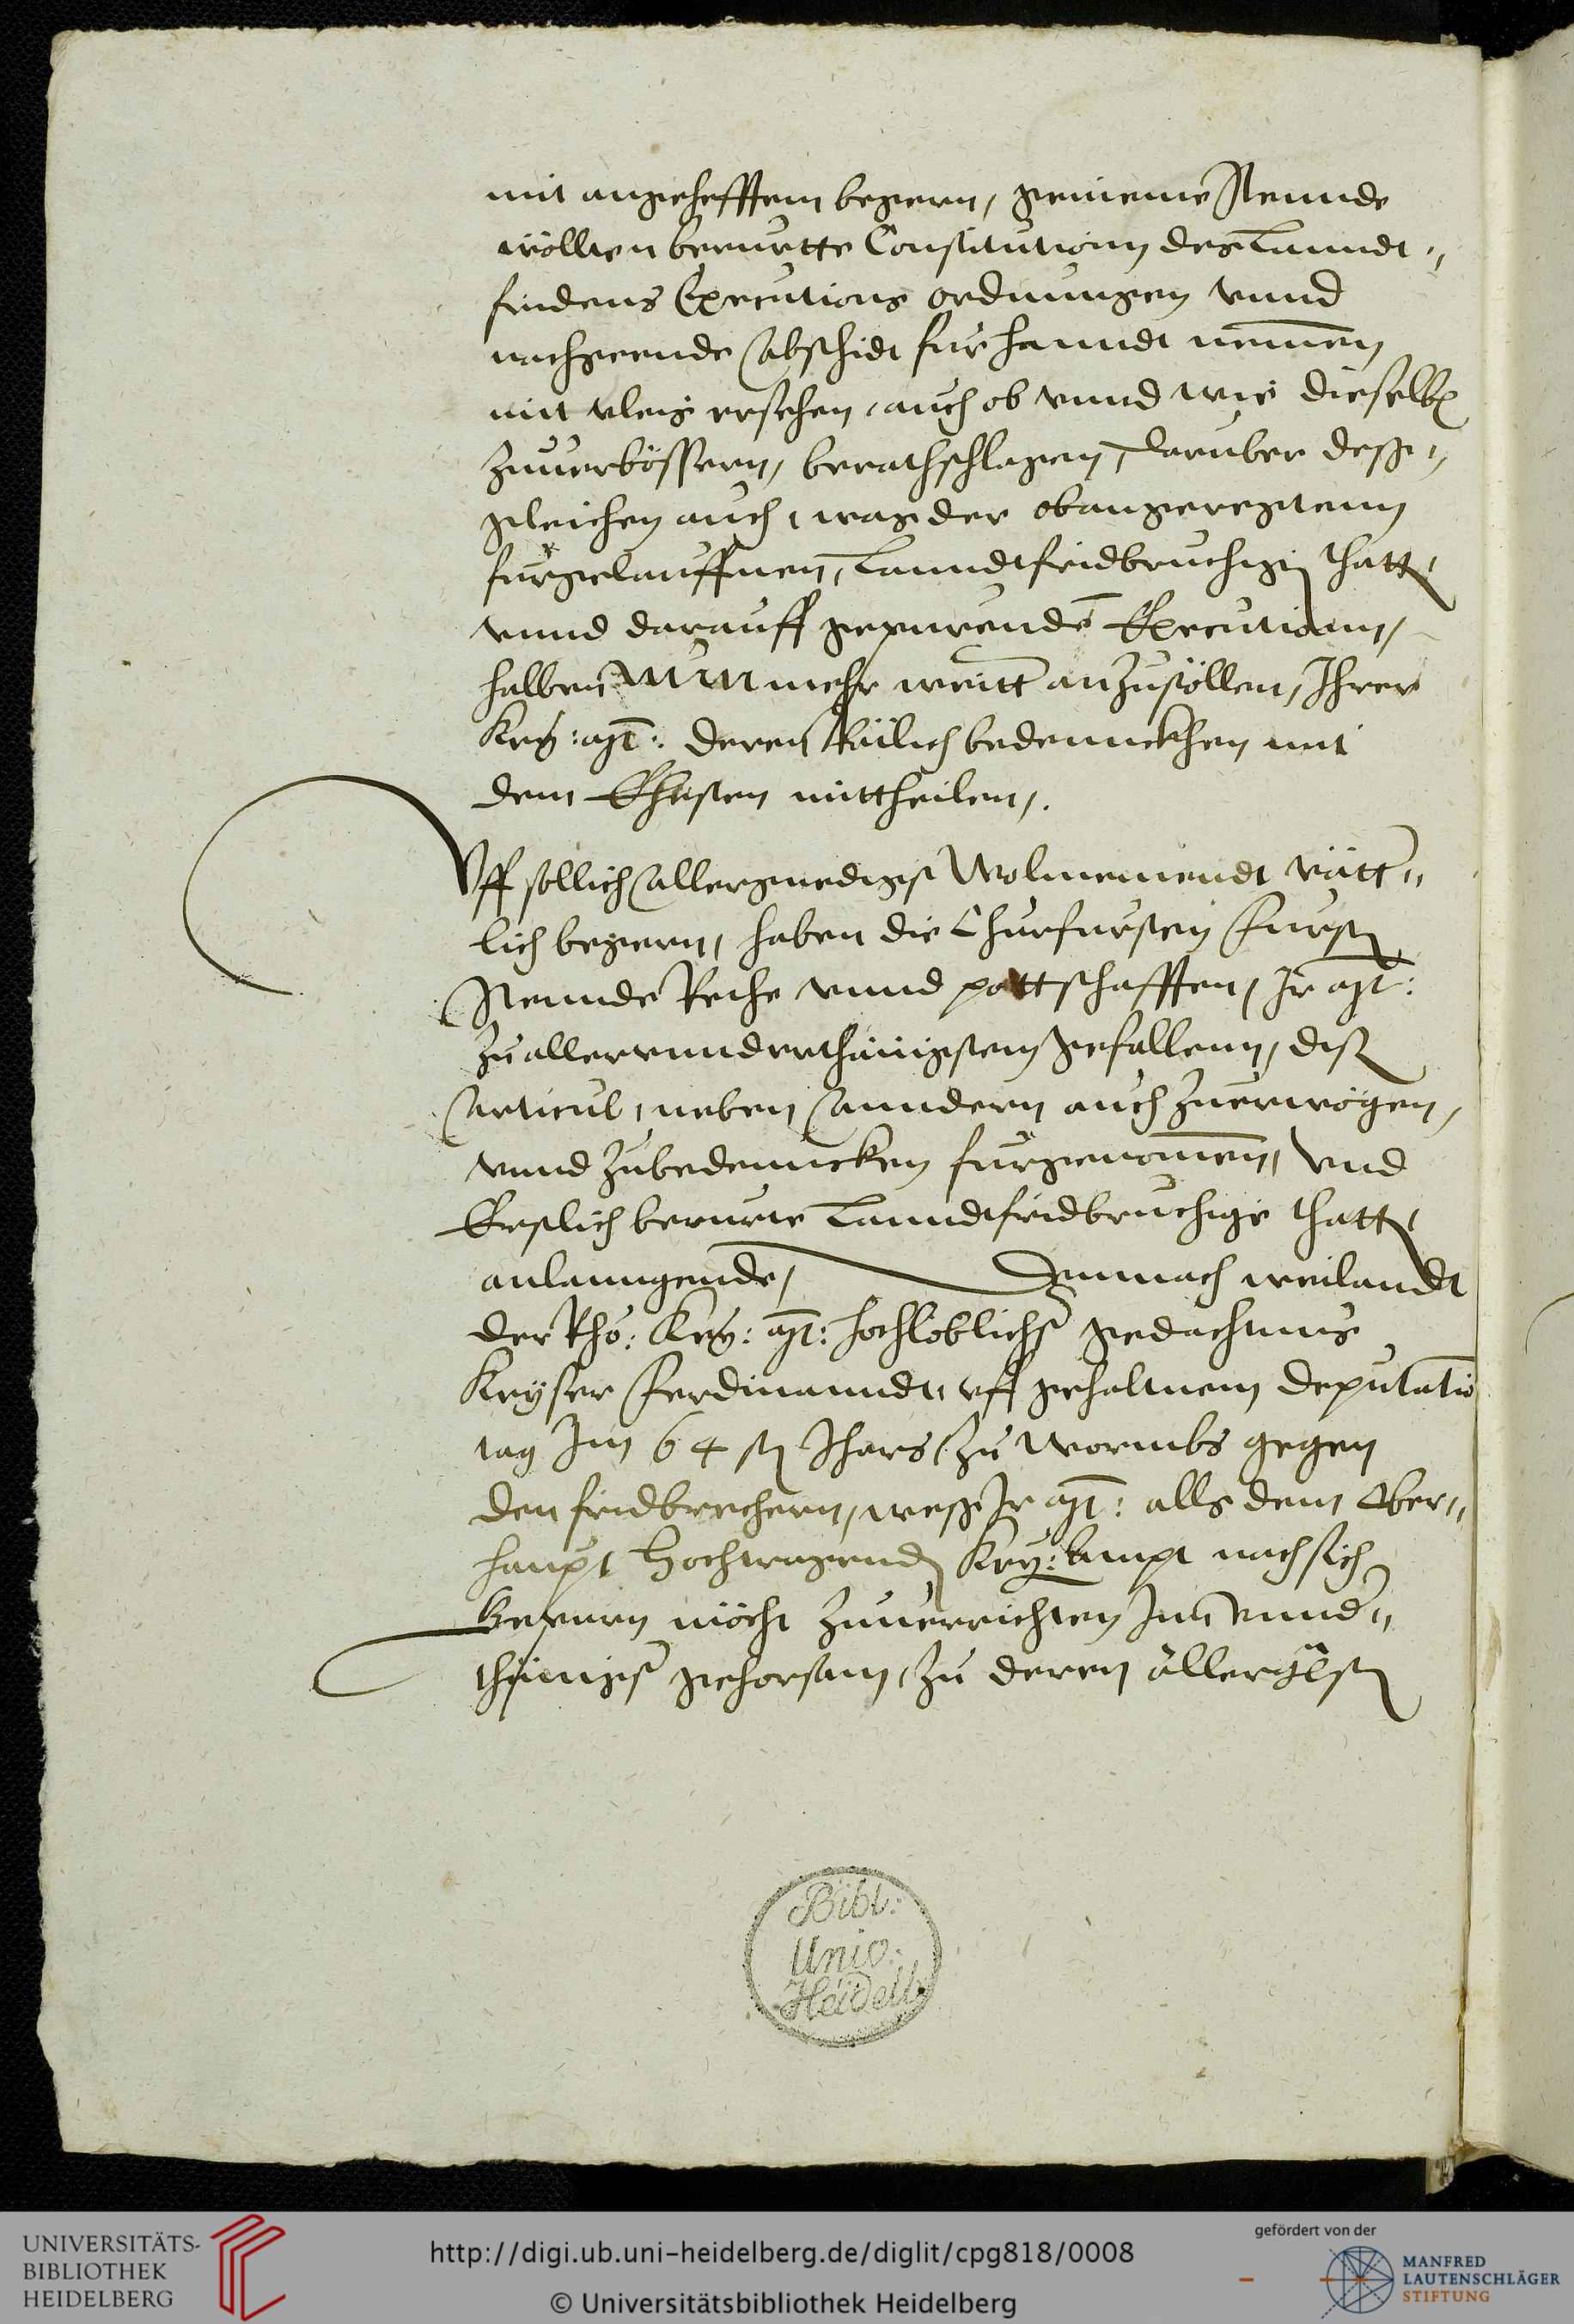 mit angehefftem begern, gemeine Stennde
wöllen berurtte Constitutionn des Lanndt„
fridens Executions ordnungen vnnd
nachgeende Abschidt fur hanndt nemen
mit vleis ersehen, auch ob vnnd wie dieselben
zuuerbössern, berathschlagen, daruber dess„
gleichen auch, was der obangeregtenn
furgelauffnen, Lanndtfridbruchigen thatt,
vnnd darauff gepurende Executionn,
halben nun mehr weitter anzustöllen, Ihrer
Key: Mt: deren Rätlich bedennckhen mit
dem Ehisten mittheilen,.
Vff sollich Allergnedigst Wolmeinendt vätter„
lich begern, haben die Churfursten Fursten
Stennde Rethe vnnd pottschafften, Ir Mt:
zu allervnnderthänigstem gefallenn, disen
Articul, neben Anndern auch zuerwögen,
vnnd zubedenncken furgenomen, Vnd
Erstlich berurte Lanndtfridbruchige thatt,
anlanngende, Demnach weilandt
der Rhö: Key: Mt: hochloblichster gedachtnus
Keyser Ferdinanndt, vff gehaltnem deputation
tag Im 64 sten Ihars, zu Wormbs gegen
den fridbrechern, wess Ir Mt: alls dem Ober„
haupt Hochtragenden Key: Ampt nach sich
Gepurn möcht zuuerrichten Inn vnnder„
thänigster gehorsam, zu deren allergsten
Bibl:
Univ:
Heidelb.
UNIVERSITÄTS-
BIBLIOTHEK
HEIDELBERG
http://digi.ub.uni-heidelberg.de/diglit/cpg818/0008
© Universitätsbibliothek Heidelberg
gefördert von der
MANFRED
LAUTENSCHLÄGER
STIFTUNG